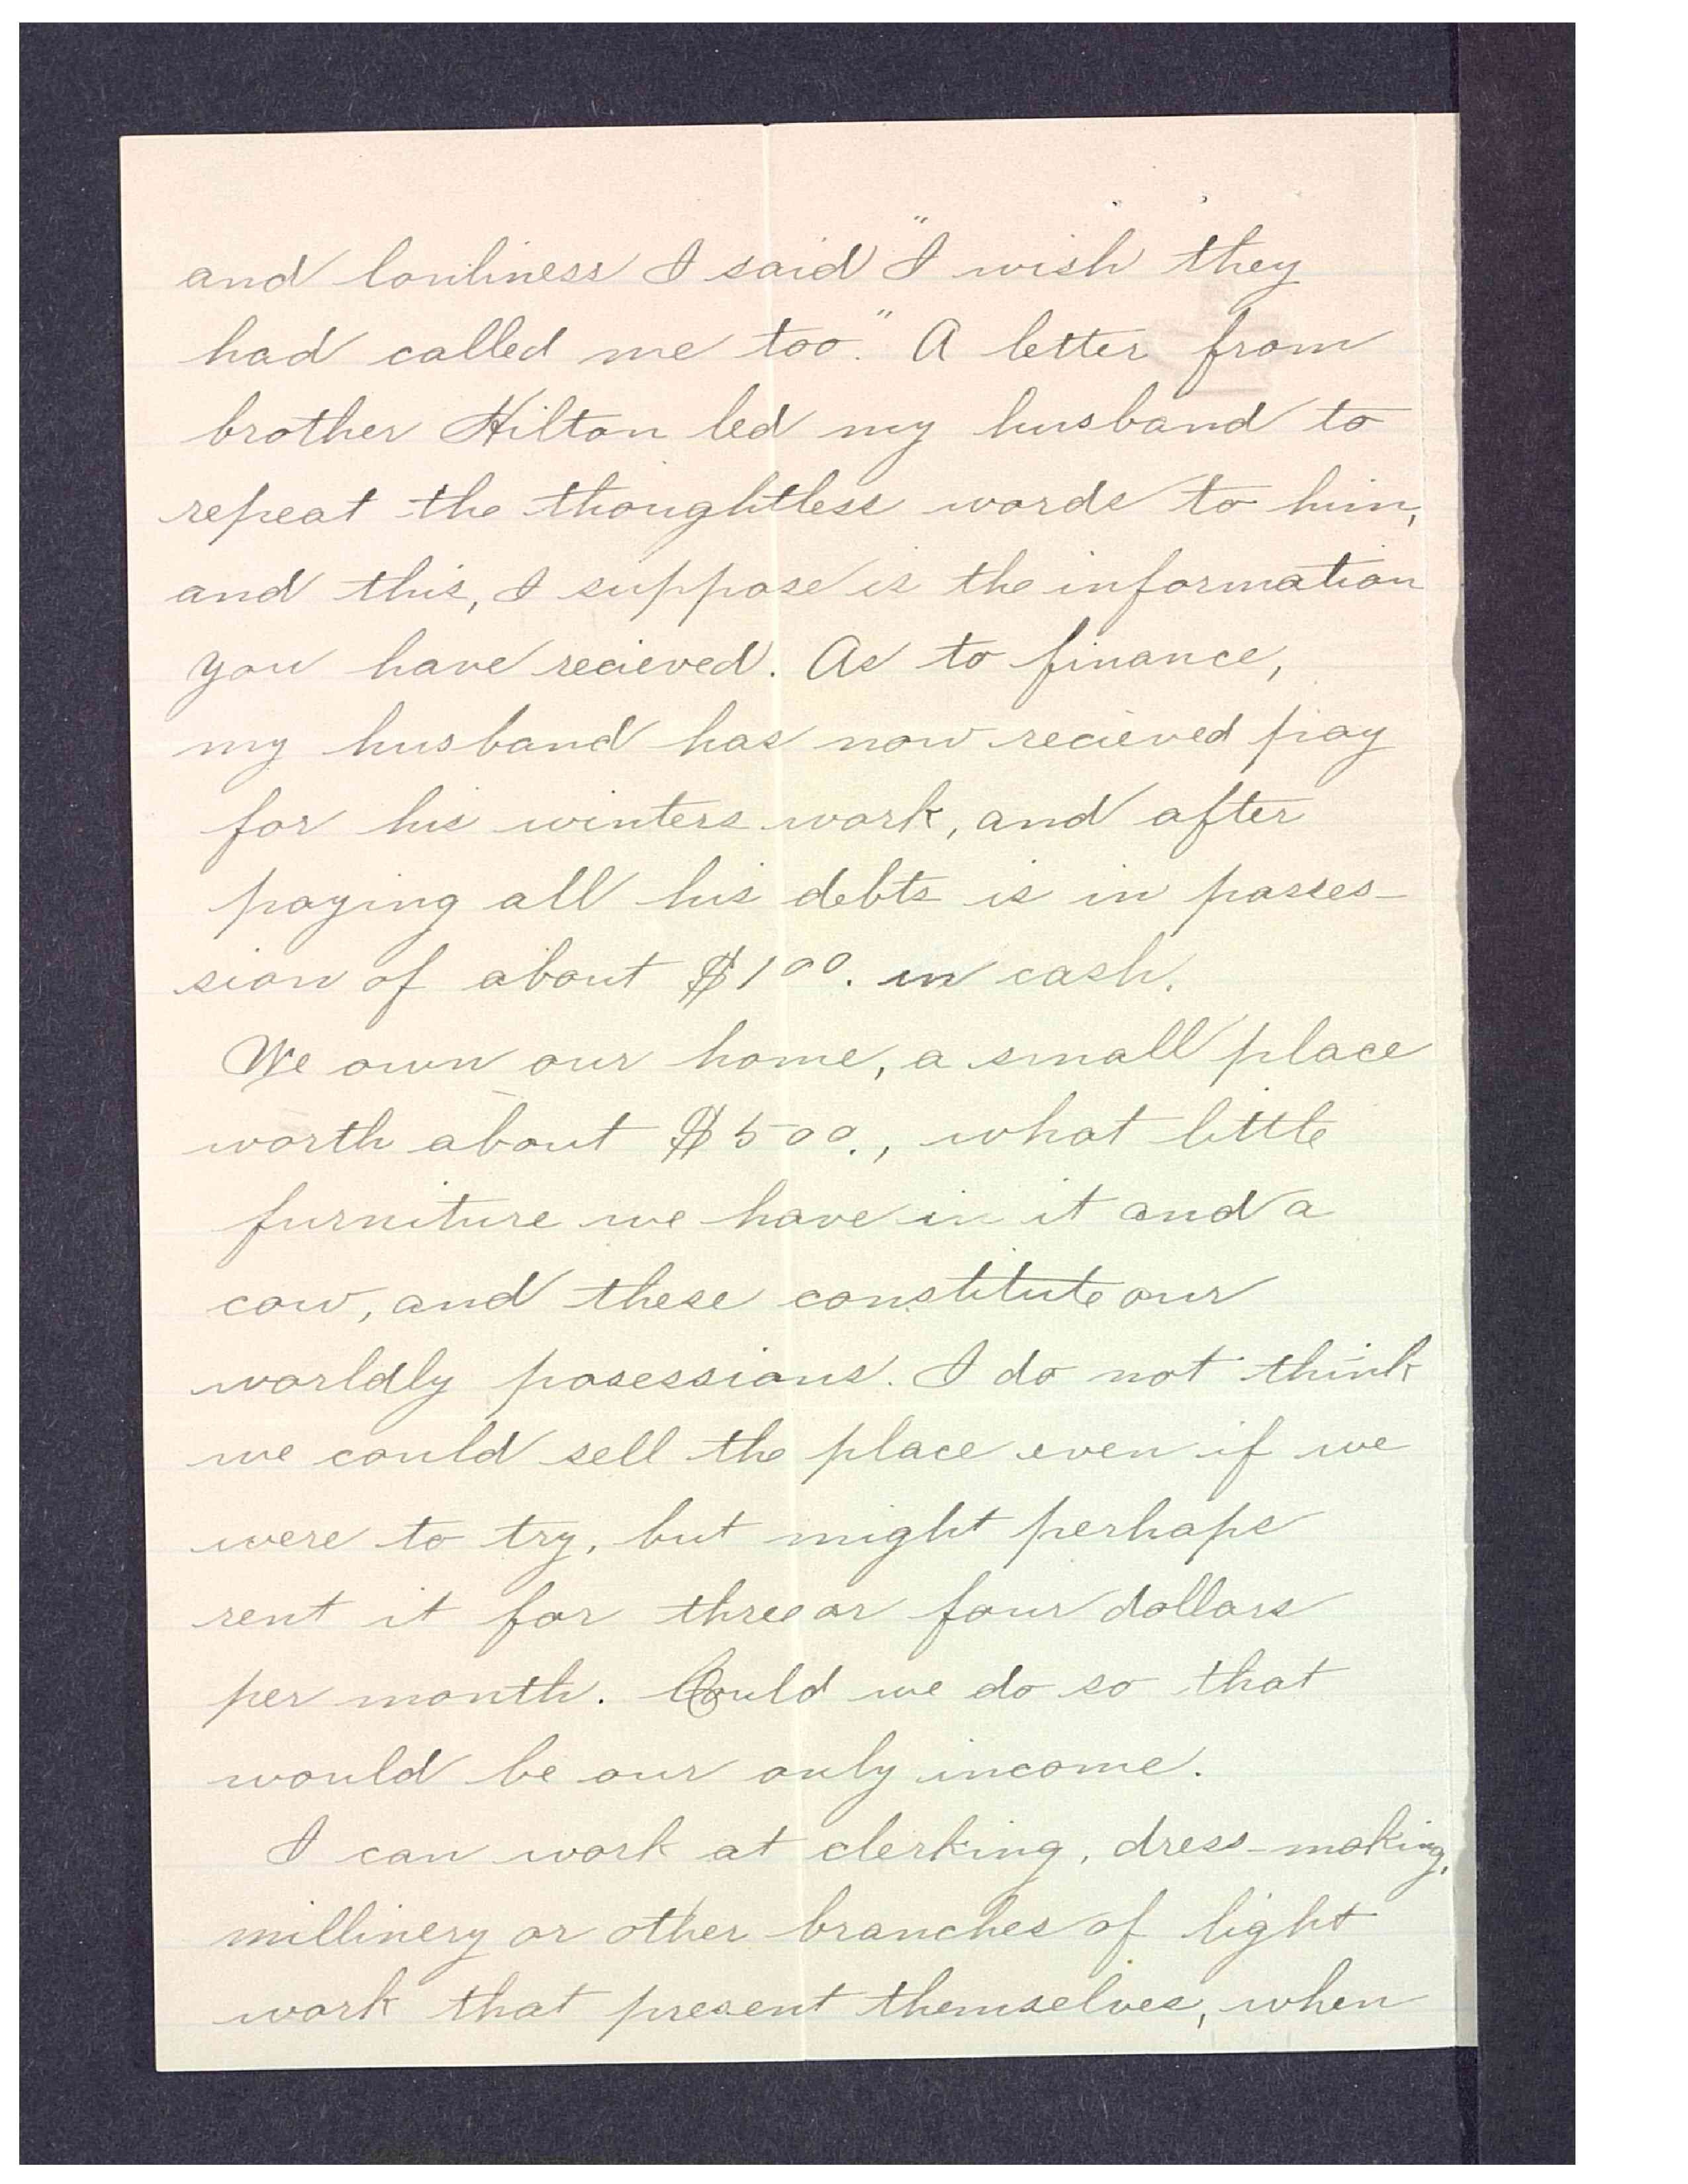 and lonliness I said "I wish they
had called me too." A letter from
brother Hilton led my husband to
repeat the thoughtless words to him,
and this, I suppose is the information
you have recieved. As to finance,
my husband has now recieved pay
for his winters work, and after
paying all his debts is in posses-
sion of about $100. in cash.
We own our home, a small place
worth about $500., what little
furniture we have in it and a
cow, and these constitute our
worldly posessions. I do not think
we could sell the place even if we
were to try, but might perhaps
rent it for three or four dollars
per month. Could we do so that
would be our only income.
I can work at clerking, dress-making,
millinery or other branches of light
work that present themselves, when